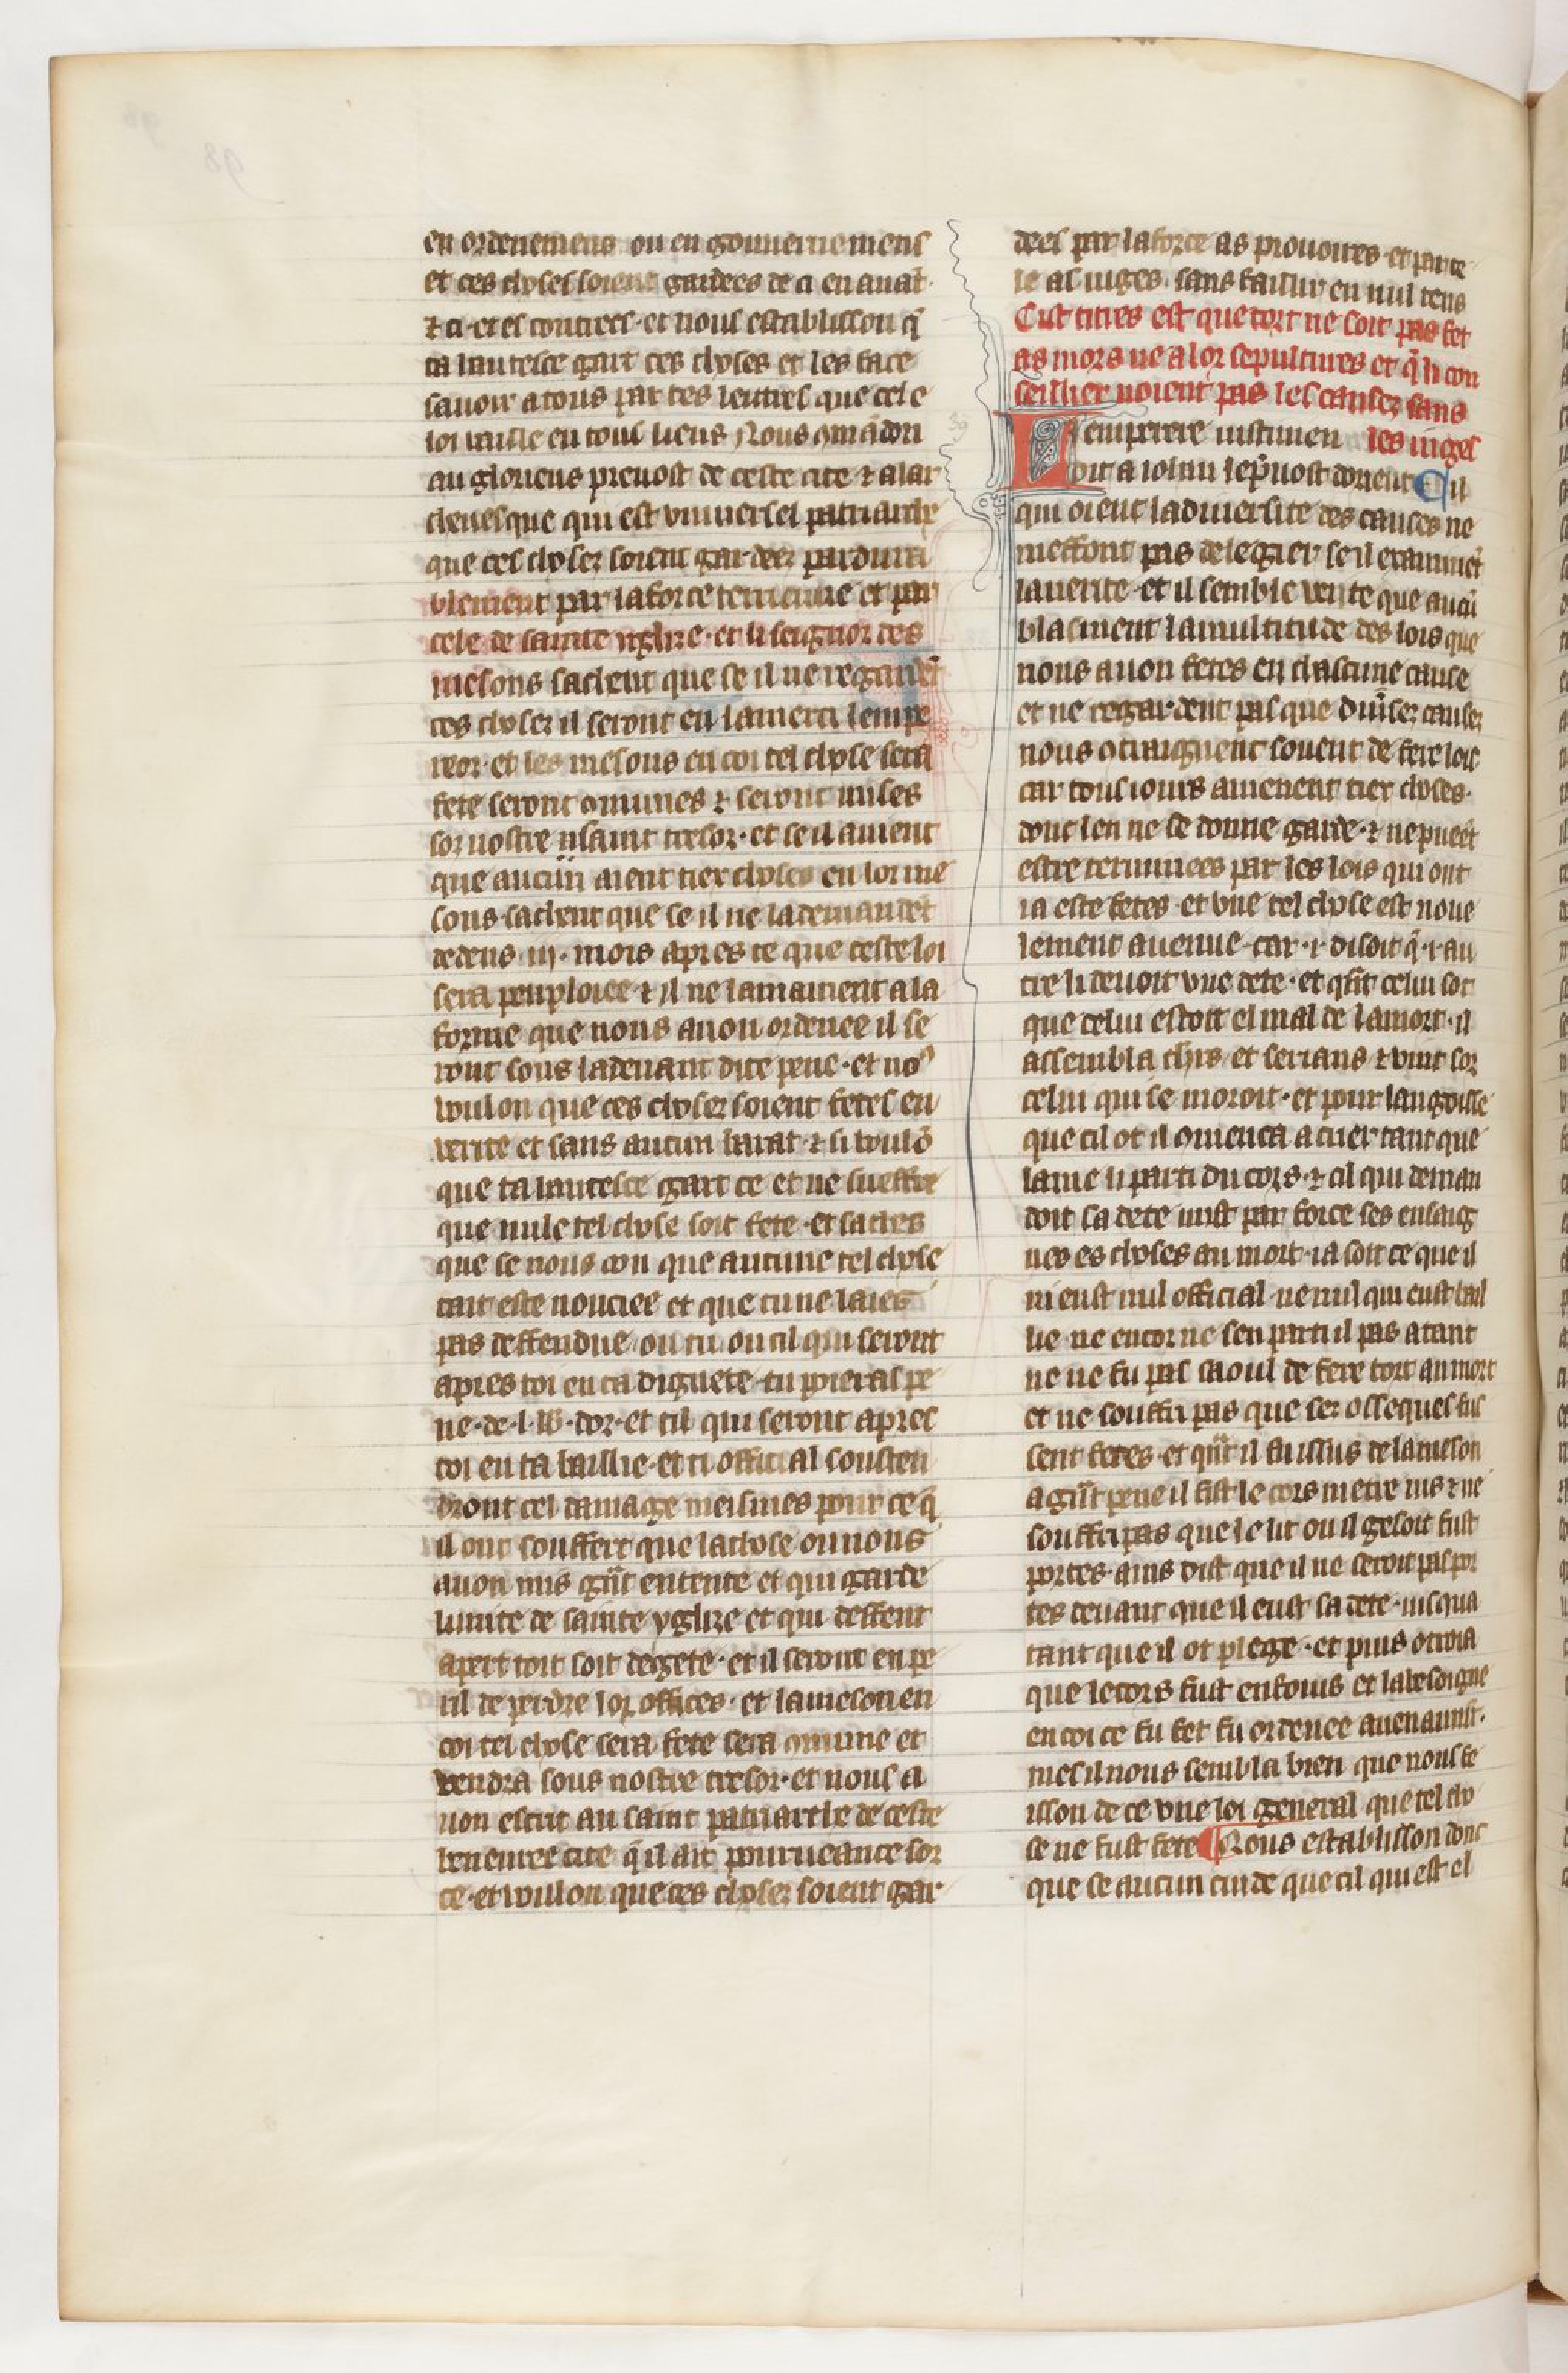 en ordenemens ou en gouuernemens
et ces choses soient gardees de ci en auāt.
⁊ ci et es contrees. et nous establisson q̄
ta hautesce gart ces choses et les face
sauoir a tous par tes lettres que cele
loi vaille en tous lieus Nous 9mādon
au glorieus preuost de ceste cite ⁊ a lar
cheuesque qui est vniuersel patriarche
que ces chosez soient gardeez pardura
blement par la force terrienne et par
cele de sainte yglize. et li seignor des
mesons sachent que se il ne regardēt
ces chosez il seront en la merci lempe
reor. et les mesons en coi tel chose sera
fete seront 9munes ⁊ seront mises
sor nostre saint tresor. et se il auient
que aucun aient tiex choses en lor me
sons sachent que se il ne la demandēt
dedens .iij. mois apres ce que ceste loi
sera peuploiee ⁊ il ne lamainent a la
forme que nous auon ordenee il se
ront sous la deuant dite peine. et noꝰ
voulon que ces chosez soient fetes en
verite et sans aucun barat. ⁊ si voulō
que ta hautesce gart ce et ne sueffre
que nule tel chose soit fete. et saches
que se nous oon que aucune tel chose
tait este nonciee et que tu ne laies
pas deffendue ou tu ou cil qui seront
apres toi en ta dignete. tu poieras pe
ne. de .l. lb. dor. et cil qui seront apres
toi en ta baillie. et ti official sousten
dront cel damage meismes pour ce q̄
il ont souffert que la chose ou nous
auon mis gn̄t entente et qui garde
lunite de sainte yglize et qui deffent
apert tort soit degete. et il seront en pe
ril de perdre lor offices. et la meson en
coi tel chose sera fete sera 9mune et
vendra sous nostre tresor. et nous a
uon escrit au saint patriarche de ceste
beneuree cite q̄ il ait pourueance sor
ce. et voulon que ces chosez soient gar
dees par la force as prouoires. et par ce
le as iuges. sans faillir en nul tens
Cist titres est que tort ne soit pas fet
as mors ne a lor sepultures et q̄ li con
seillier noient pas les causez sans
les iuges
Lemperere iustinien
dit a iohan le p̄uost dorient Cil
qui oient la diuersite des causes ne
meffont pas de legier se il examinēt
la uerite. et il semble verite que aucū
blasment la multitude des lois que
nous auon fetes en chascune cause
et ne regardent pas que diu̾sez causez
nous 9traignent souent de fere lois
car tous iours amenent tiex choses.
dont len ne se donne garde. ⁊ ne pueēt
estre terminees par les lois qui ont
ia este fetes. et vne tel chose est noue
lement auenue. car .i. disoit q̄ .i. au
tre li deuoit vne dete. et qn̄t celui sot
que celui estoit el mal de la mort. il
assembla chrs et serians ⁊ vint sor
celui qui se moroit. et pour langoisse
que cil ot il 9menca a crier tant que
lame li parti du cors. ⁊ cil qui deman
doit sa dete mist par force ses ensaig
nes es choses au mort. ia soit ce que il
ni eust nul official ne nul qui eust bail
lie. ne encor ne sen parti il pas atant
ne ne fu pas saoul de fere tort au mort
et ne souffri pas que ses osseques fus
sent fetes. et qn̄t il fu issus de la meson
a gn̄t peine il fist le cors metre ius ⁊ ne
souffri pas que le lit ou il gesoit fust
portes. ains dist que il ne seroit pas por
tes deuant que il eust sa dete. iusqua
tant que il ot plege. et puis otroia
que le cors fust enfouis et la besoigne
en coi ce fu fet fu ordenee auenaunt.
mes il nous sembla bien que nous fe
isson de ce vne loi general que tel cho
se ne fust fete ¶ Nous establisson donc
que se aucun cuide que cil qui est el